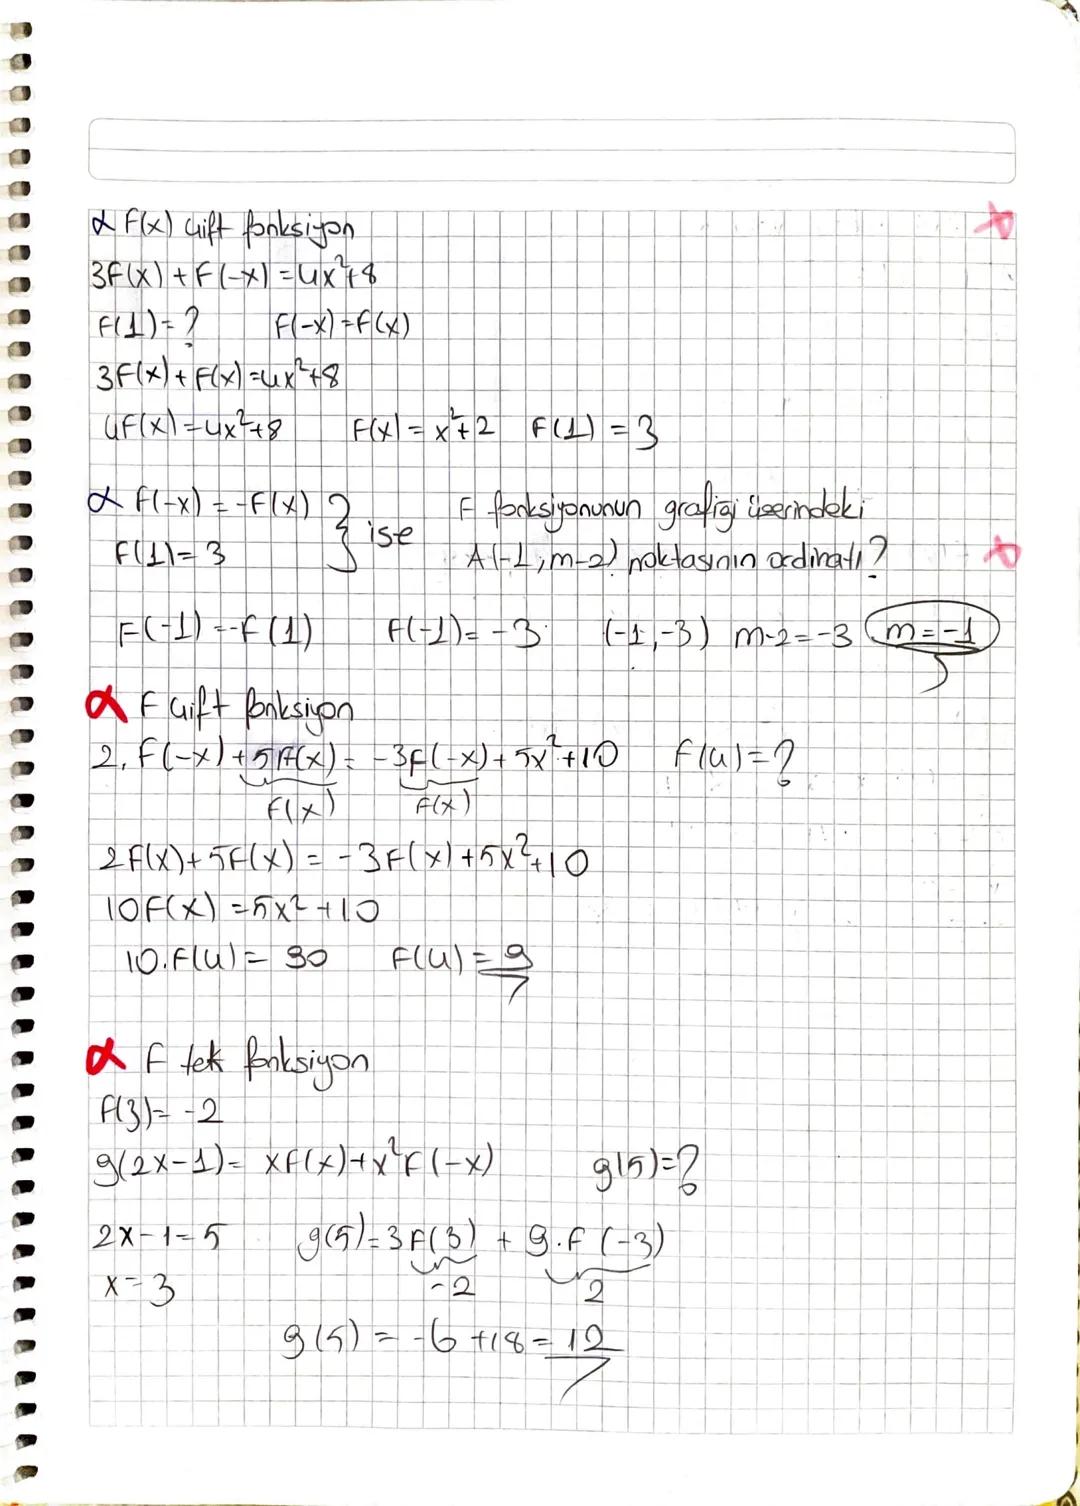 α F(x) Çift fonksiyon
3F(x) + F(-x) = 4x²+8
F(1) = ? F(-x) = F(x)
3F(x) + F(x) = 4x²+8
4F(x) = 4x²+8 F(x) = x²+2 F(1) = 3
α F(-x) = -F(x) } ise F fonksiyonunun grafiği üzerindeki
F(1) = 3 A(-1, m-2) noktasının ordinatı?
F(-1) = -F(1) F(-1) = -3 (-1, -3) m-2 = -3 m = -1
α F Çift fonksiyon
2. F(-x) + 5F(x) = -3F(-x) + 5x²+10 F(4) = ?
F(x) F(x)
2F(x) + 5F(x) = -3F(x) + 5x²+10
10F(x) = 5x²+10
10.F(4) = 90 F(4) = 9
α F tek fonksiyon
F(3) = -2
g(2x-1) = xF(x) + x²F(-x) g(5) = ?
2x-1 = 5 g(5) = 3F(3) + 9.F(-3)
x = 3 -2 2
g(5) = -6 + 18 = 12